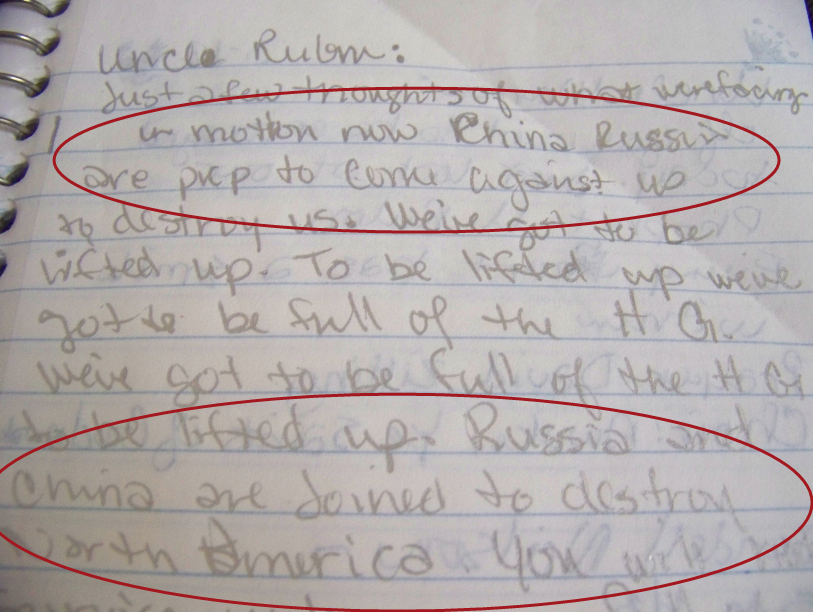 Uncle Rubin:
Just a few thoughts of what werefacing
in motion now China Russia
are prep to come against us
to destroy us. Weive got to be
lifted up. To be lifted up weive
got to be full of the H G.
Weive got to be full of the H G
to be lifted up. Russia and
China are Joined to destroy
North America. You will